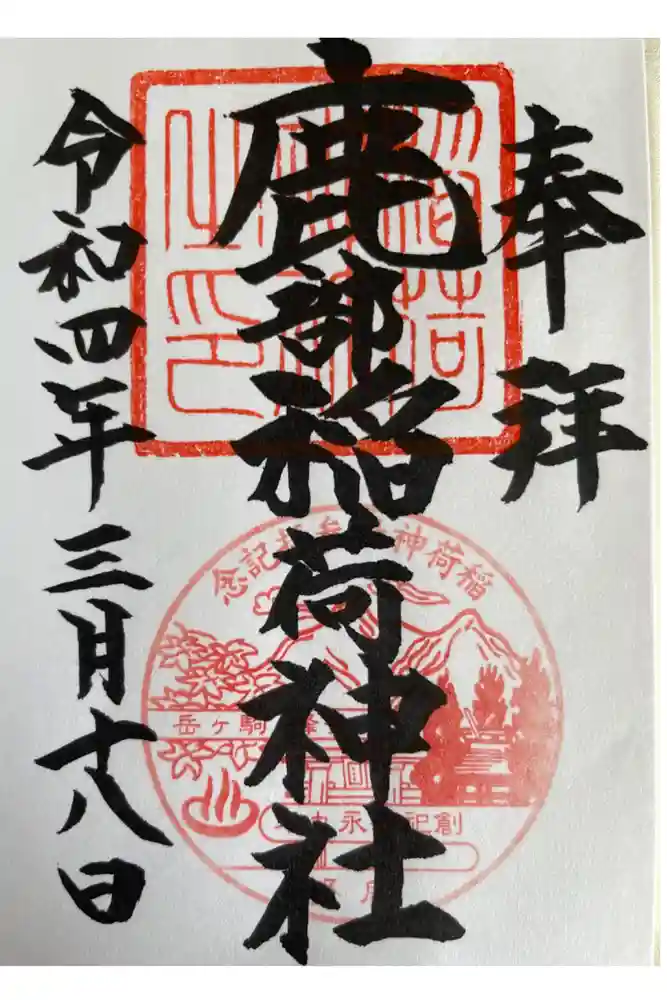 奉拝
鹿部稲荷神社
令和四年三月十八日
稲荷神
記念
駒ヶ岳
創祀
永